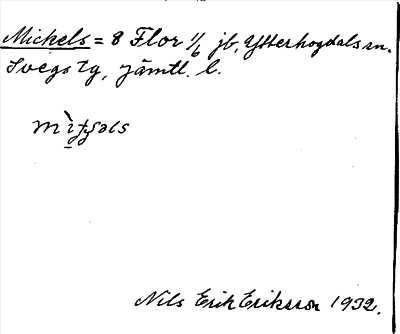 Mickels = 8 Flor 1/6 jb, Ytterhogdals sn.
Svegs tg, Jämtl. l.
Nils Erik Eriksson 1932.